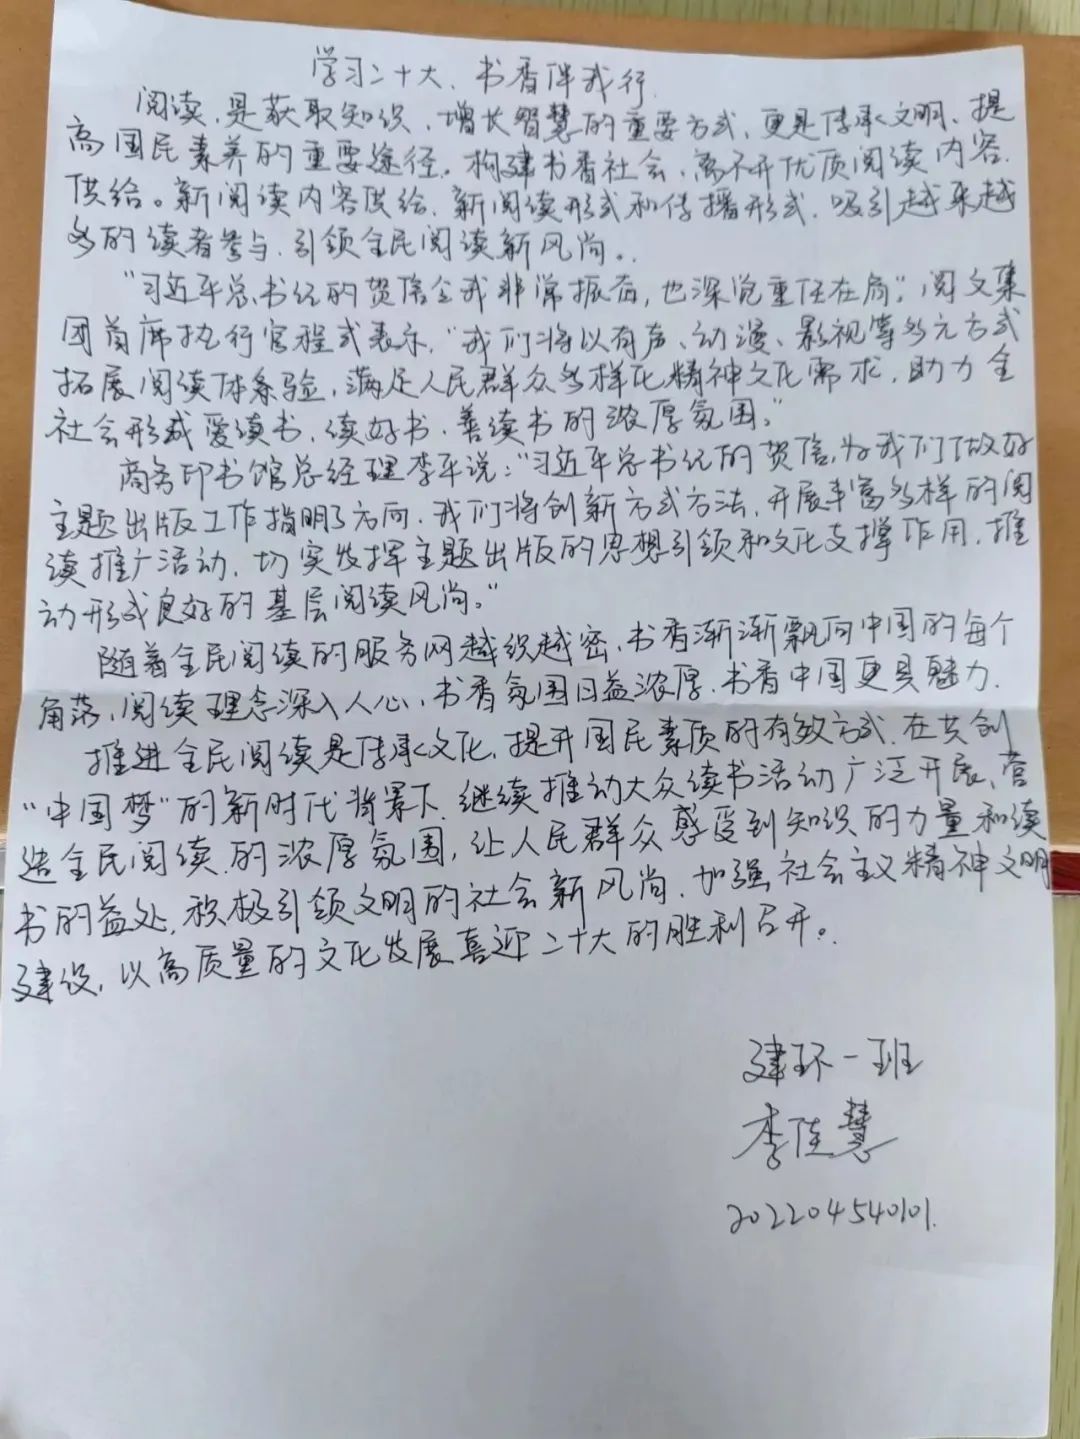 学习二十大、书香伴我行.
阅读,是获取知识,增长智慧的重要方式,更是传承文明、提
高国民素养的重要途径。构建书香社会,离不开优质阅读内容.
供给。新阅读内容供给,新阅读形式和传播形式,吸引越来越
多的读者参与,引领全民阅读新风尚。
“习近平总书记的贺信令我非常振奋,也深觉重任在肩”,阅文集
团首席执行官程武表示,“我们将以有声、动漫、影视等多元方式
拓展阅读体系验,满足人民群众多样化精神文化需求,助力全
社会形成爱读书、读好书、善读书的浓厚氛围。”
商务印书馆总经理李平说:“习近平总书记的贺信,为我们做好
主题出版工作指明了方向,我们将创新方式方法,开展丰富多样的阅
读推广活动,切实发挥主题出版的思想引领和文化支撑作用,推
动形成良好的基层阅读风尚。”
随着全民阅读的服务网越织越密,书香渐渐飘向中国的每个
角落,阅读理念深入人心,书香氛围日益浓厚,书香中国更具魅力.
推进全民阅读是传承文化,提升国民素质的有效方式,在共创
“中国梦”的新时代背景下,继续推动大众读书活动广泛开展,营
造全民阅读的浓厚氛围,让人民群众感受到知识的力量和读
书的益处,积极引领文明的社会新风尚,加强社会主义精神文明
建设,以高质量的文化发展喜迎二十大的胜利召开。
建环一班
李佳慧
202204540101.